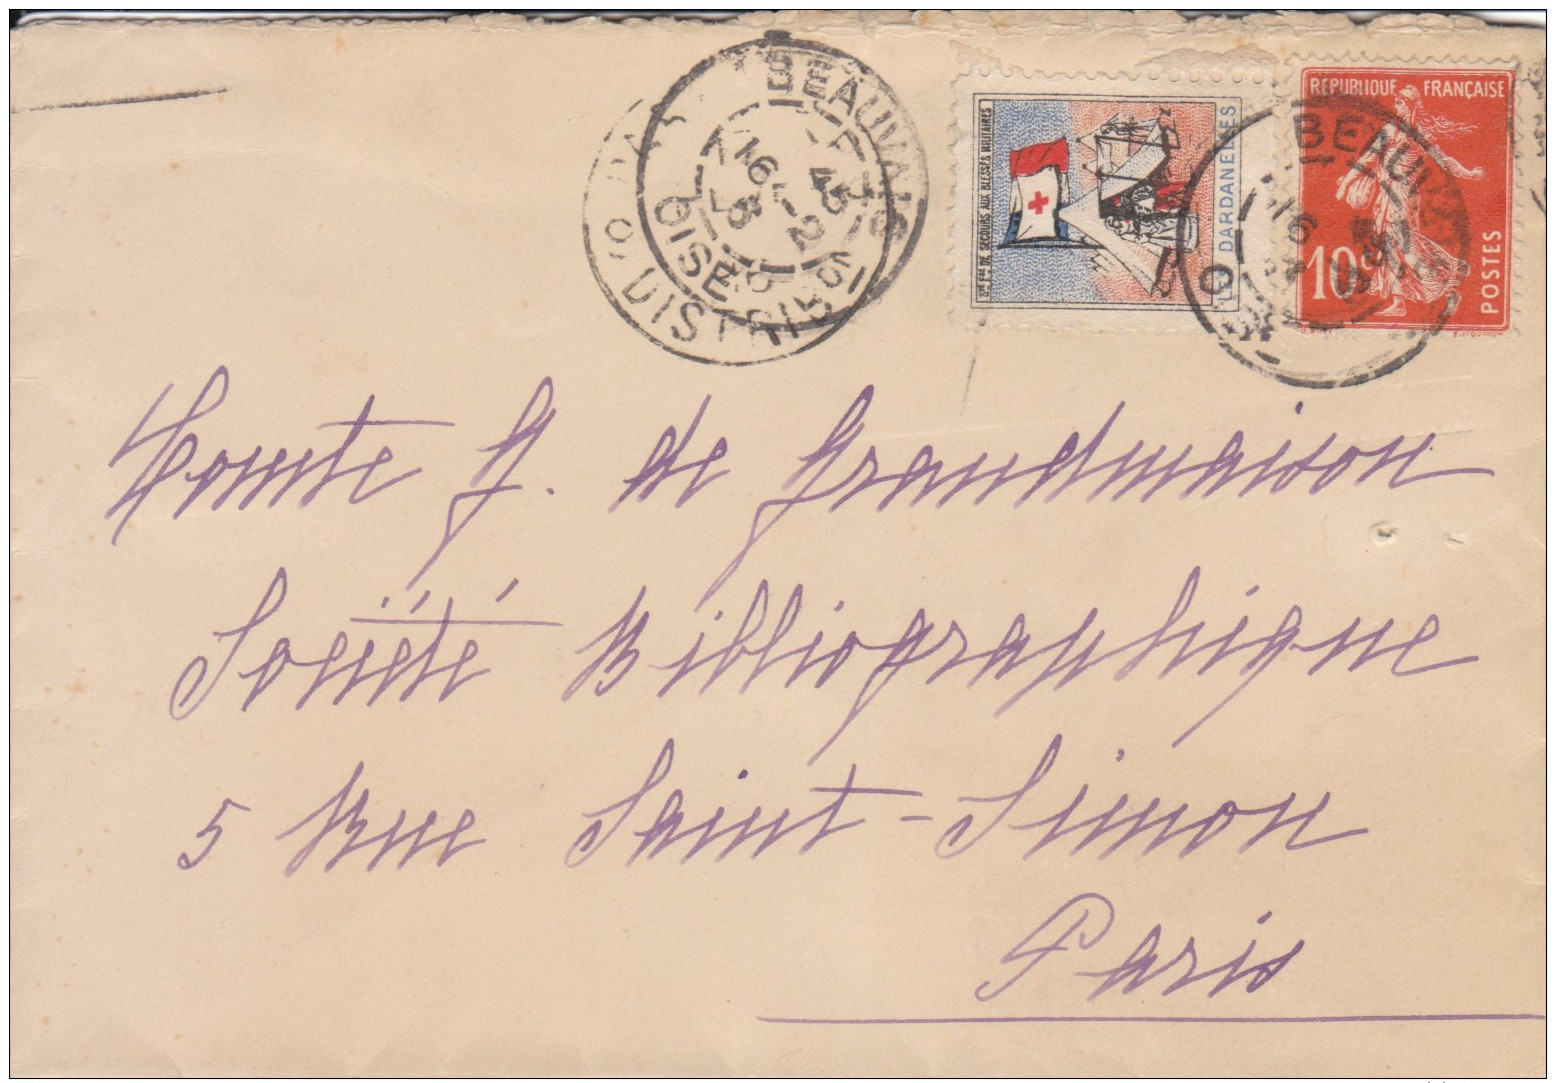 BEAUVAIS
OISE
PARIS
DISTRIB
Sté Fse DE SECOURS AUX BLESSÉS MILITAIRES
DARDANELLES
BEAUVAIS
RÉPUBLIQUE FRANÇAISE
10c
POSTES
Comte G. de Grandmaison
Société Bibliographique
5 Rue Saint-Simon
Paris